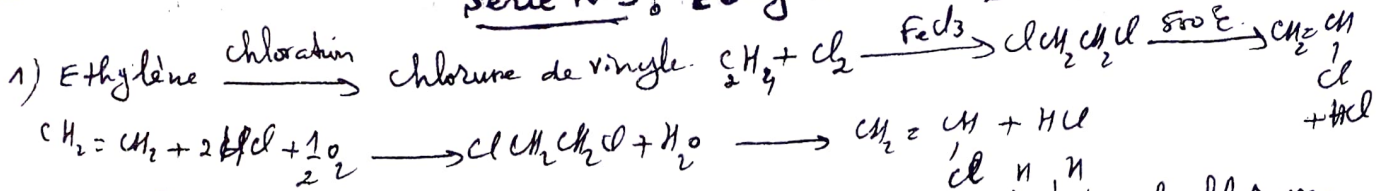 Série N°3:
1) Ethylène chloration → chlorure de vinyle. C2H4 + Cl2 FeCl3 → ClCH2CH2Cl 500°C → CH2=CH
Cl
+HCl
CH2=CH2 + 2HCl + 1/2 O2 → ClCH2CH2Cl + H2O → CH2=CH + HCl
Cl